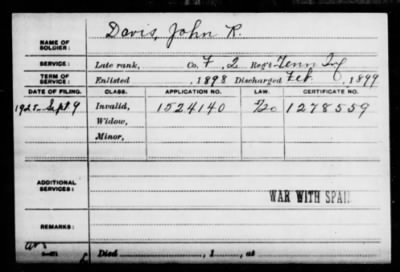 NAME OF SOLDIER: Davis, John R.
SERVICE: Late rank, Co. F, 2 Reg't Tenn Inf
TERM OF SERVICE: Enlisted , 1898 Discharged Feb 6, 1899
DATE OF FILING. CLASS. APPLICATION NO. LAW. CERTIFICATE NO.
1925 Sept 9 Invalid, 1524140 1278559
Widow,
Minor,
ADDITIONAL SERVICES: WAR WITH SPAIN
REMARKS:
Died , 1 , at